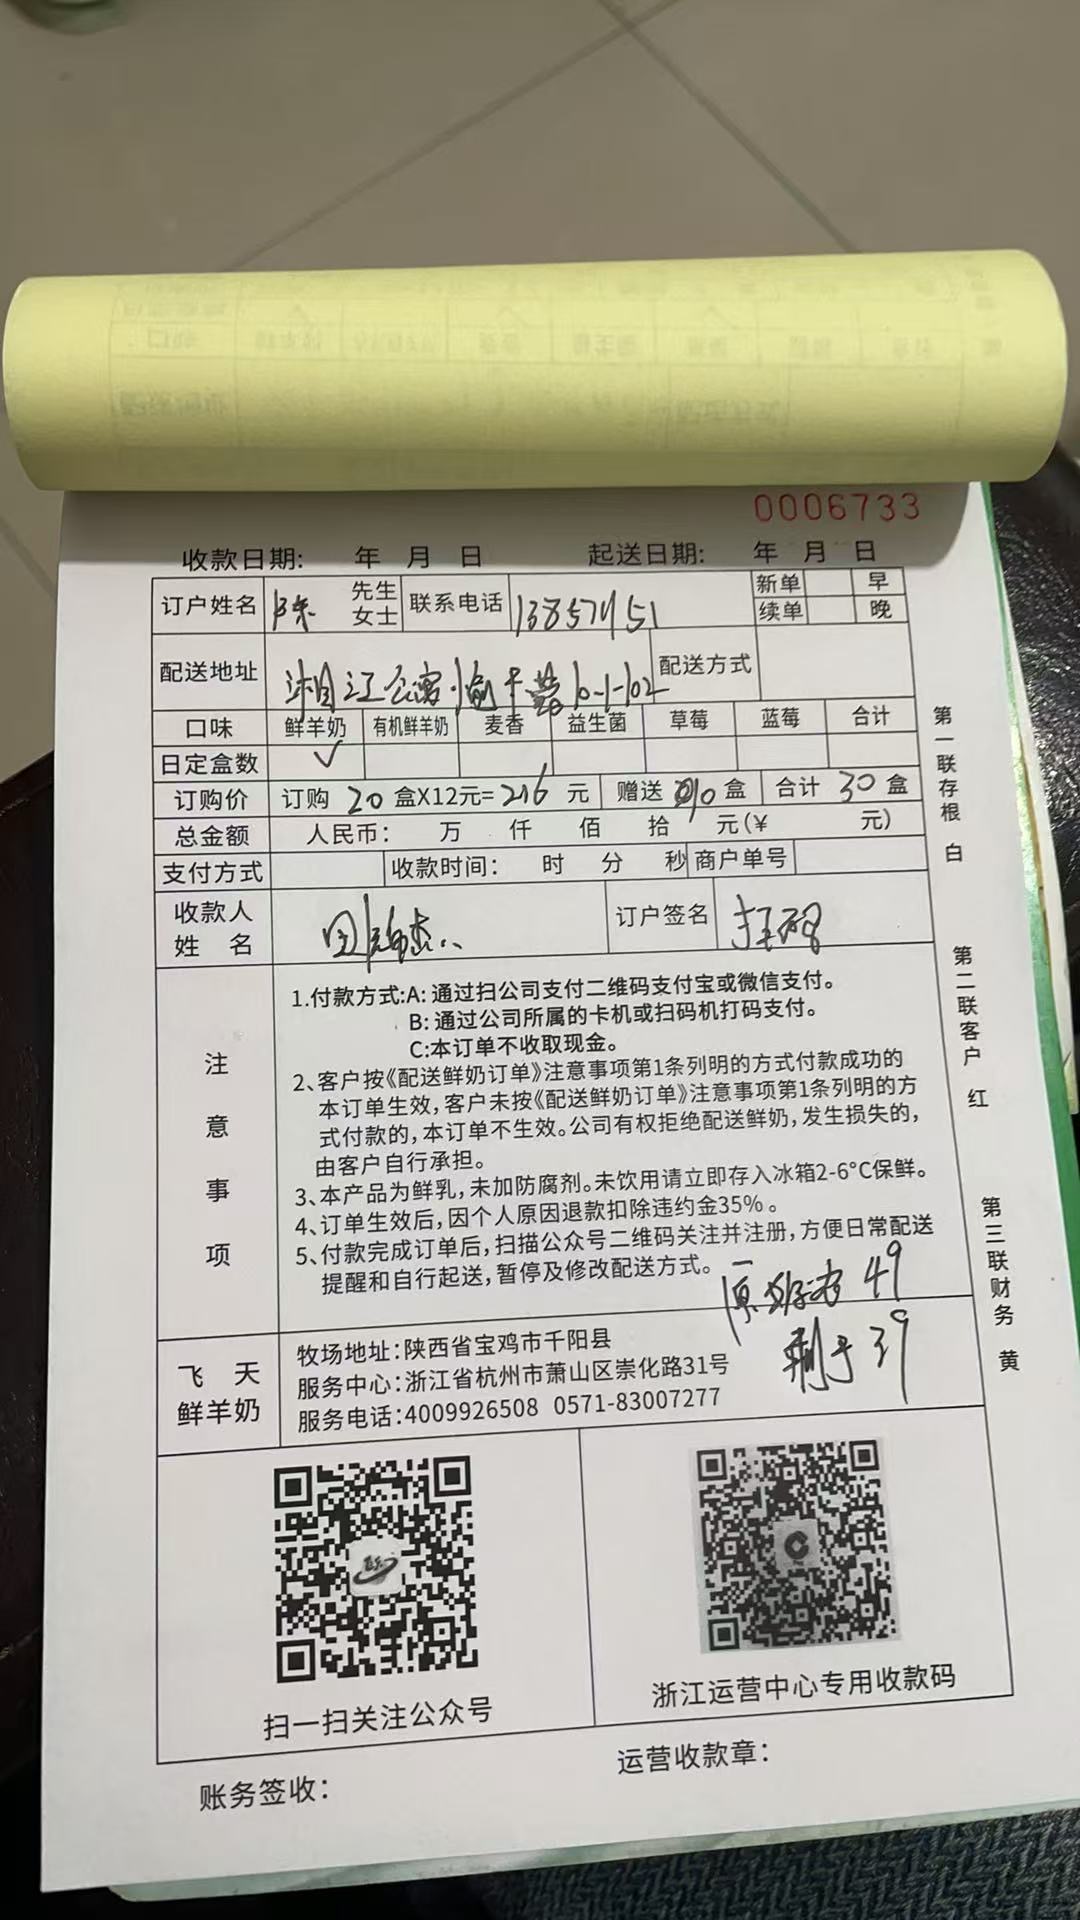 0006733
收款日期: 年 月 日 起送日期: 年 月 日
订户姓名 陈 先生 女士 联系电话 新单 早
续单 晚
配送地址 湘江公寓 10-1-102 配送方式
口味 鲜羊奶 有机鲜羊奶 麦香 益生菌 草莓 蓝莓 合计
日定盒数 ✓
订购价 订购 20 盒X12元= 216 元 赠送 10 盒 合计 30 盒
总金额 人民币: 万 仟 佰 拾 元(¥ 元)
支付方式 收款时间: 时 分 秒 商户单号
收款人姓名 订户签名
注意事项
1.付款方式:A: 通过扫公司支付二维码支付宝或微信支付。
B: 通过公司所属的卡机或扫码机打码支付。
C:本订单不收取现金。
2、客户按《配送鲜奶订单》注意事项第1条列明的方式付款成功的
本订单生效,客户未按《配送鲜奶订单》注意事项第1条列明的方
式付款的,本订单不生效。公司有权拒绝配送鲜奶,发生损失的,
由客户自行承担。
3、本产品为鲜乳,未加防腐剂。未饮用请立即存入冰箱2-6°C保鲜。
4、订单生效后,因个人原因退款扣除违约金35%。
5、付款完成订单后,扫描公众号二维码关注并注册,方便日常配送
提醒和自行起送,暂停及修改配送方式。
原 49
剩余 39
飞天鲜羊奶
牧场地址:陕西省宝鸡市千阳县
服务中心:浙江省杭州市萧山区崇化路31号
服务电话:4009926508 0571-83007277
扫一扫关注公众号
浙江运营中心专用收款码
账务签收:
运营收款章:
第一联存根 白
第二联客户 红
第三联财务 黄